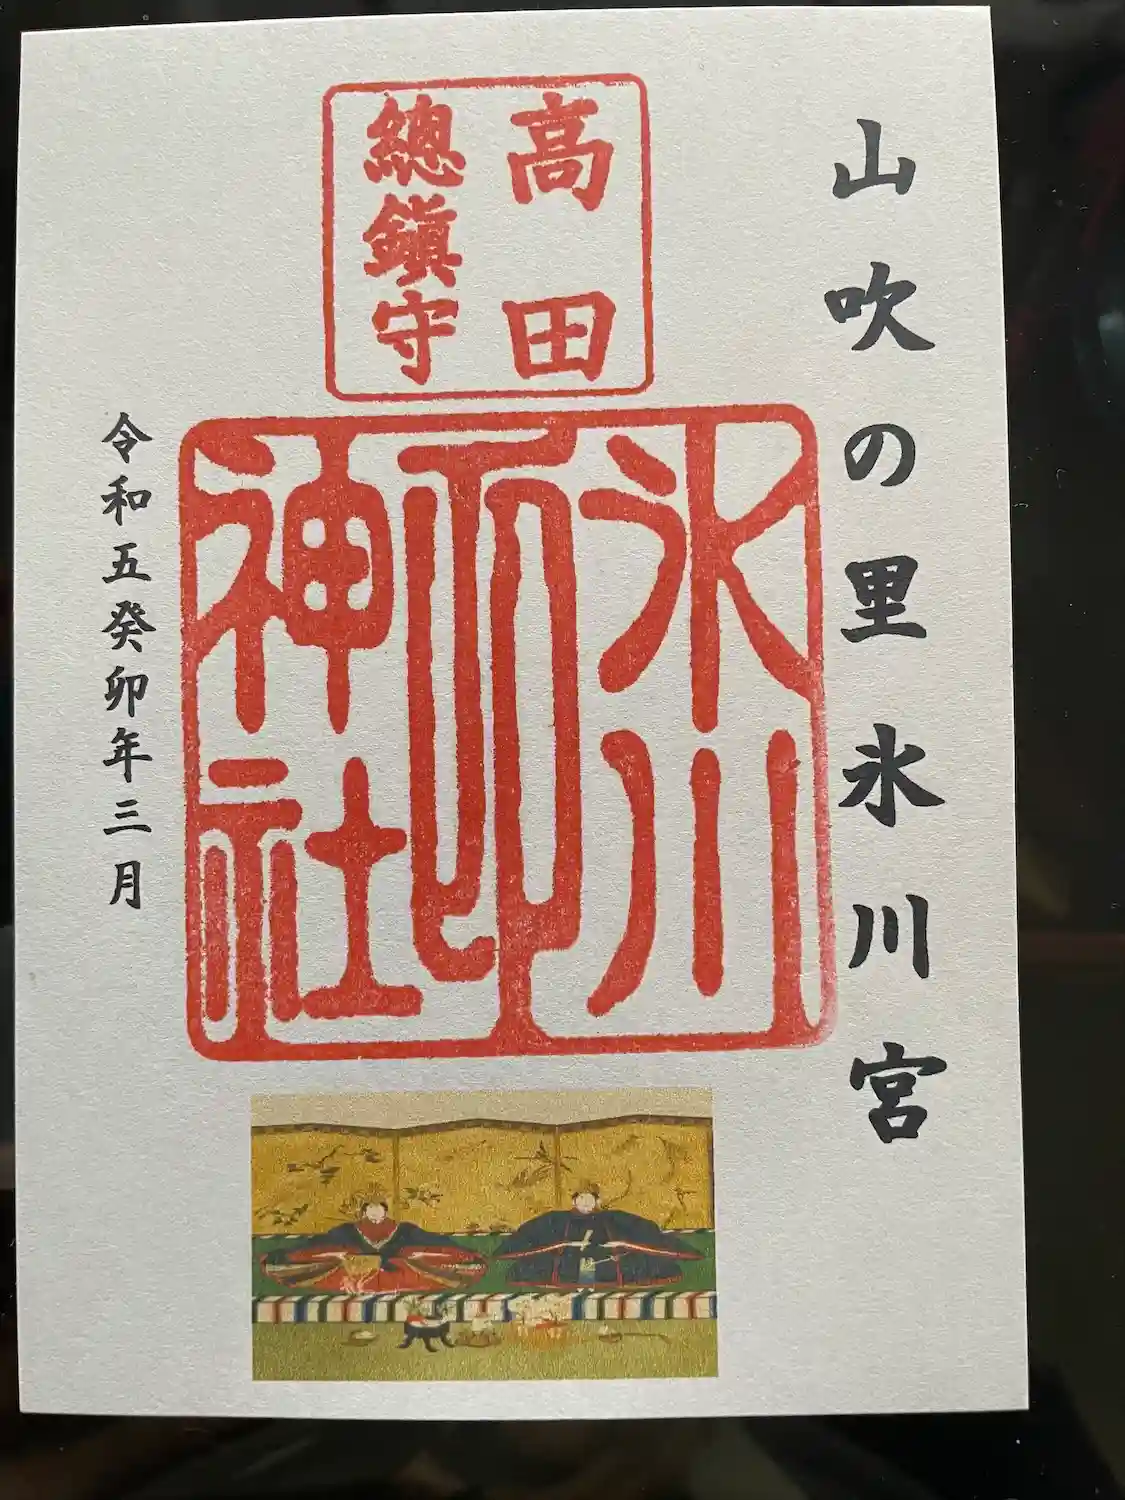 山吹の里氷川宮
高田
總鎮守
氷川
神社
令和五癸卯年三月